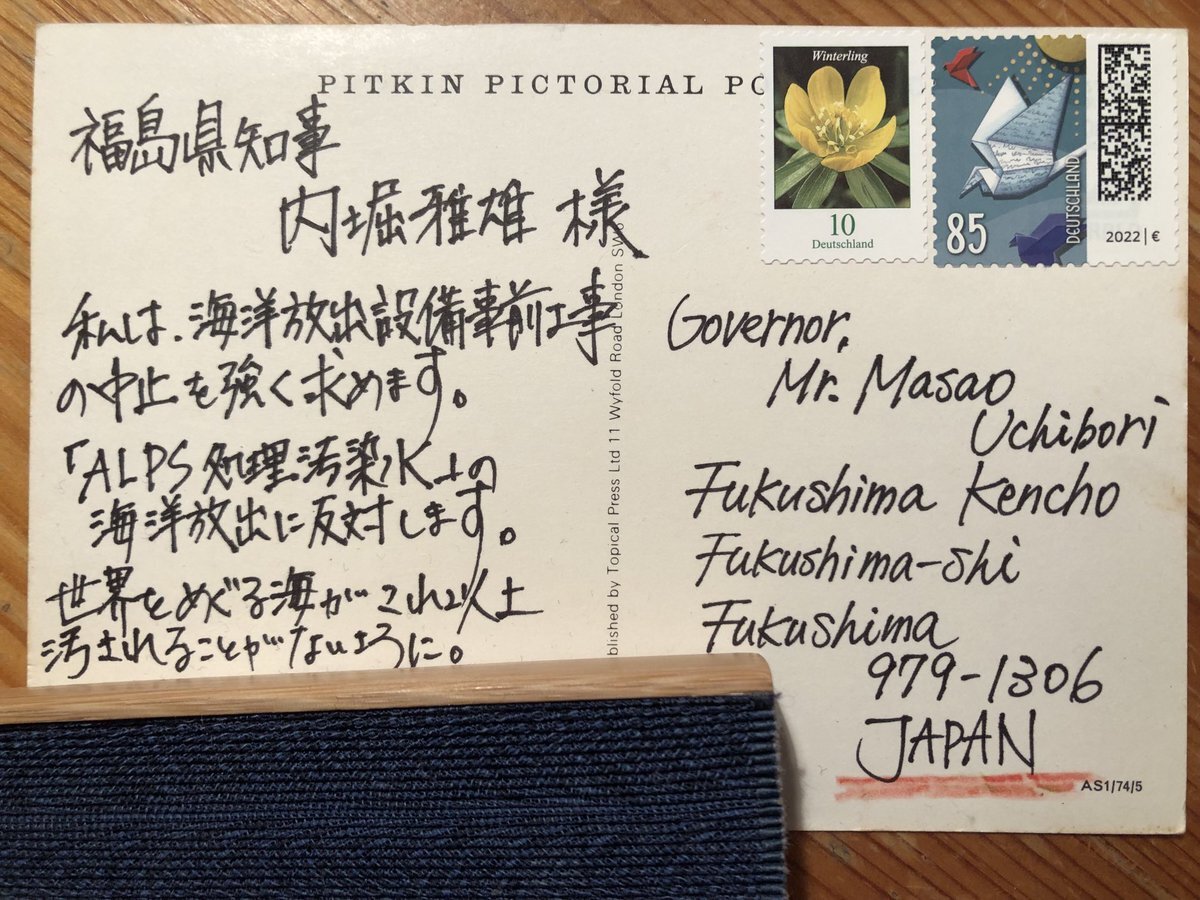 PITKIN PICTORIAL PO
福島県知事
内堀雅雄 様
私は、海洋放出設備事前工事
の中止を強く求めます。
「ALPS処理汚染水」の
海洋放出に反対します。
世界をめぐる海がこれ以上
汚されることがないように。
blished by Topical Press Ltd 11 Wyfold Road London SW6
Winterling
10
Deutschland
85
DEUTSCHLAND
2022 | €
Governor,
Mr. Masao
Uchibori
Fukushima Kencho
Fukushima-shi
Fukushima
979-1306
JAPAN
AS1/74/5